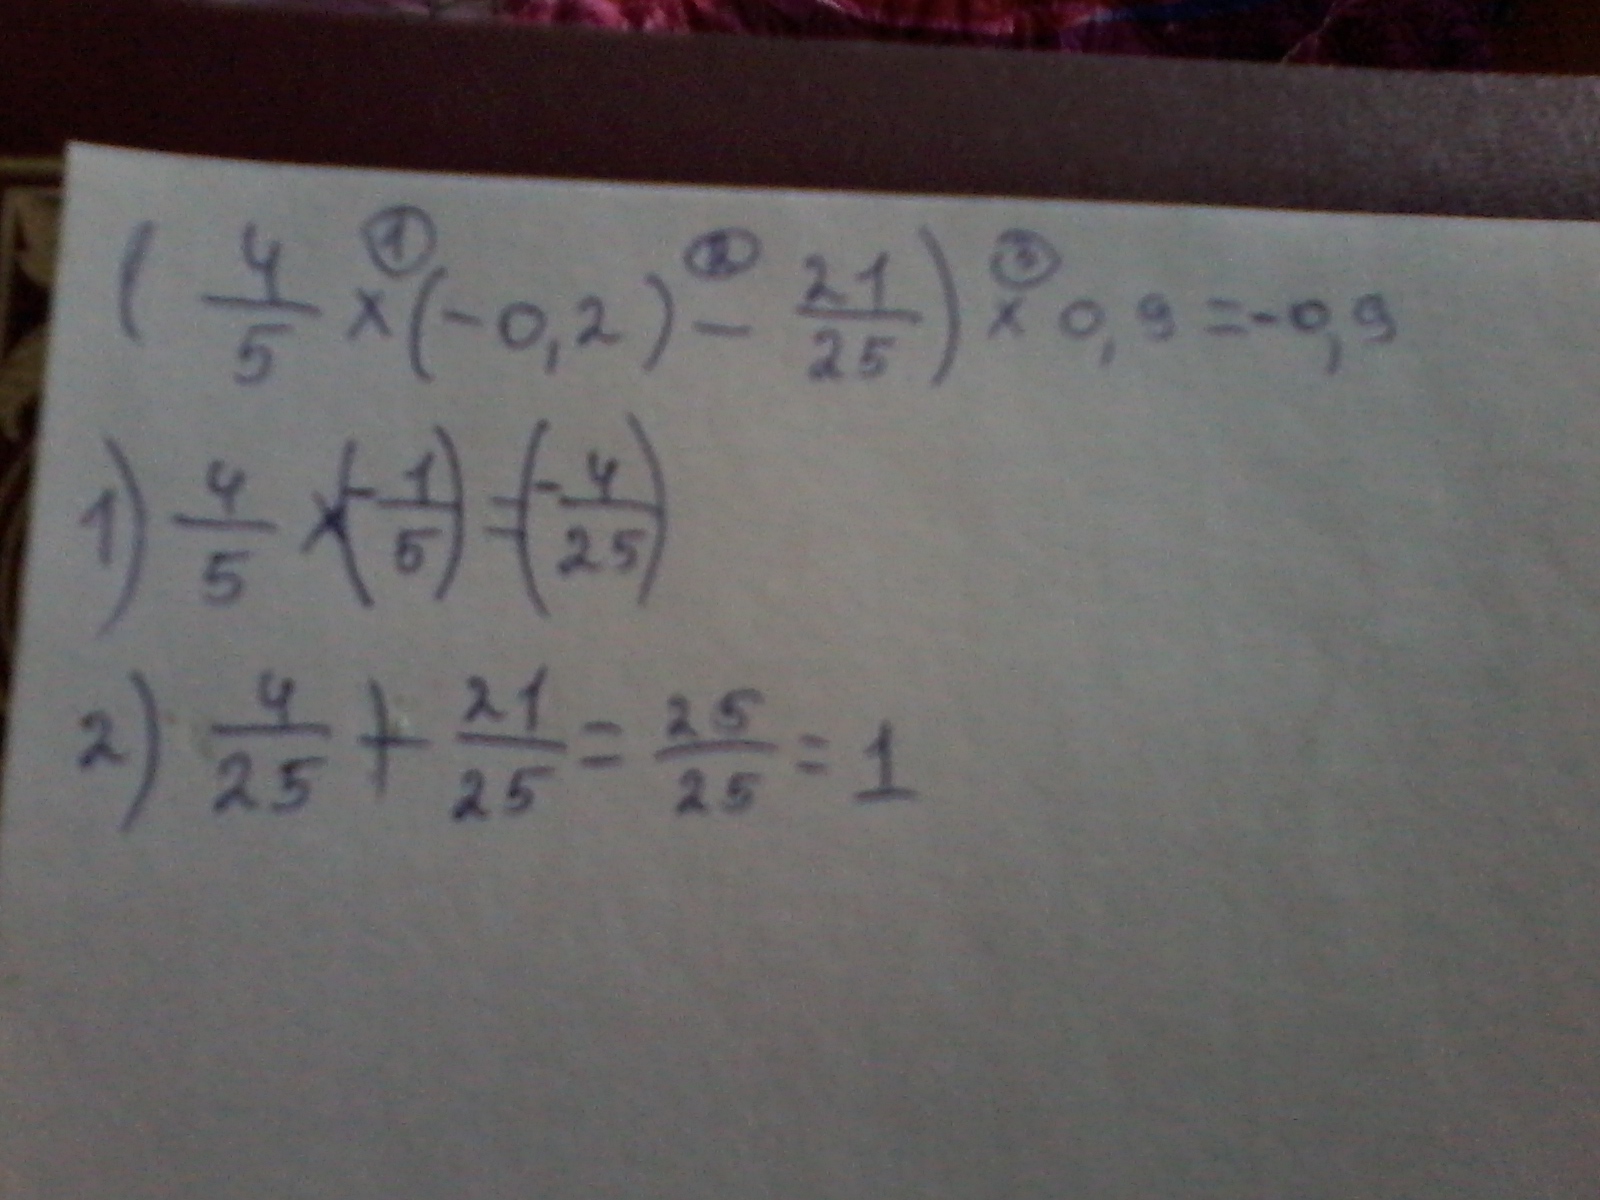 ( 4/5 ×① (-0,2) -② 21/25 ) ×③ 0,9 = -0,9
1) 4/5 × (-1/5) = (-4/25)
2) 4/25 + 21/25 = 25/25 = 1